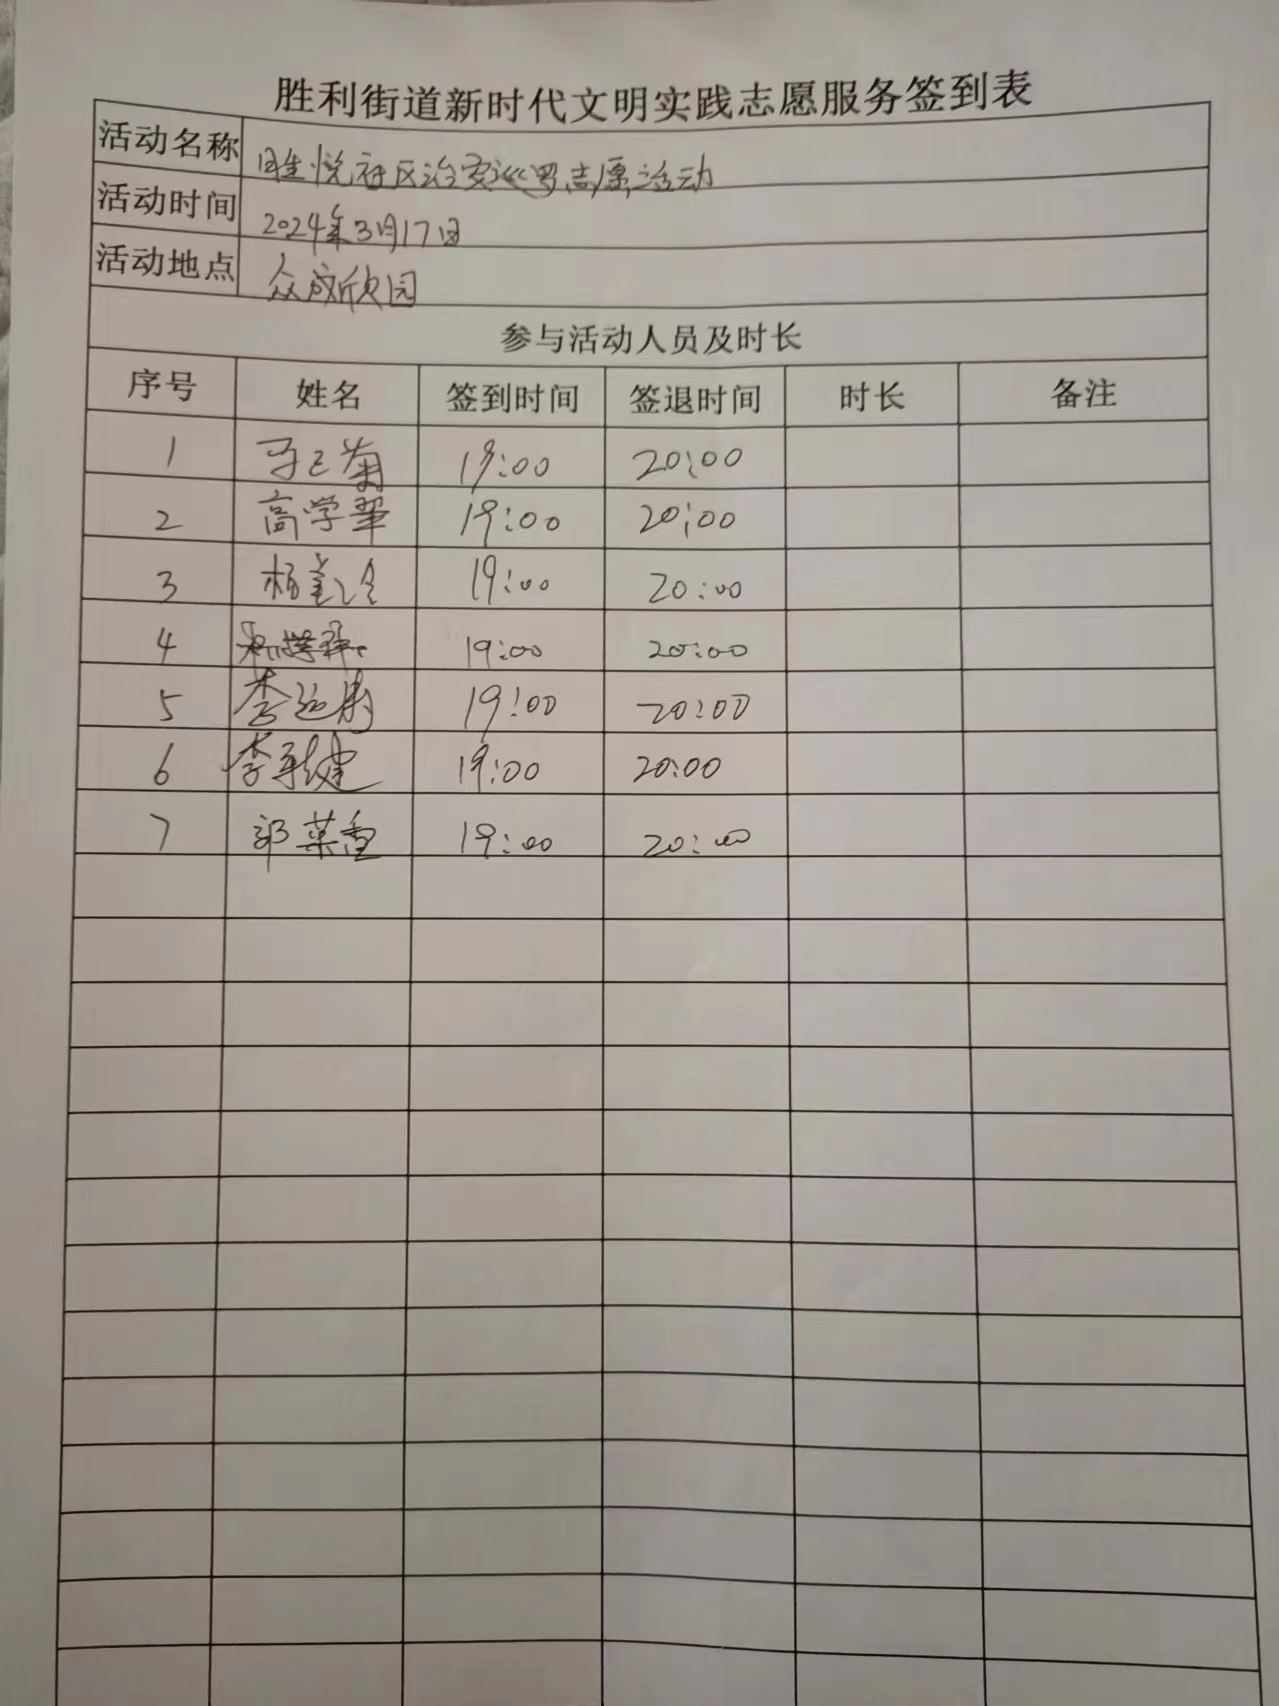 胜利街道新时代文明实践志愿服务签到表
活动名称 胜悦社区治安巡罗志愿活动
活动时间 2024年3月17日
活动地点 众成欣园
参与活动人员及时长
序号 姓名 签到时间 签退时间 时长 备注
1 19:00 20:00
2 高学华 19:00 20:00
3 19:00 20:00
4 19:00 20:00
5 19:00 20:00
6 19:00 20:00
7 19:00 20:00